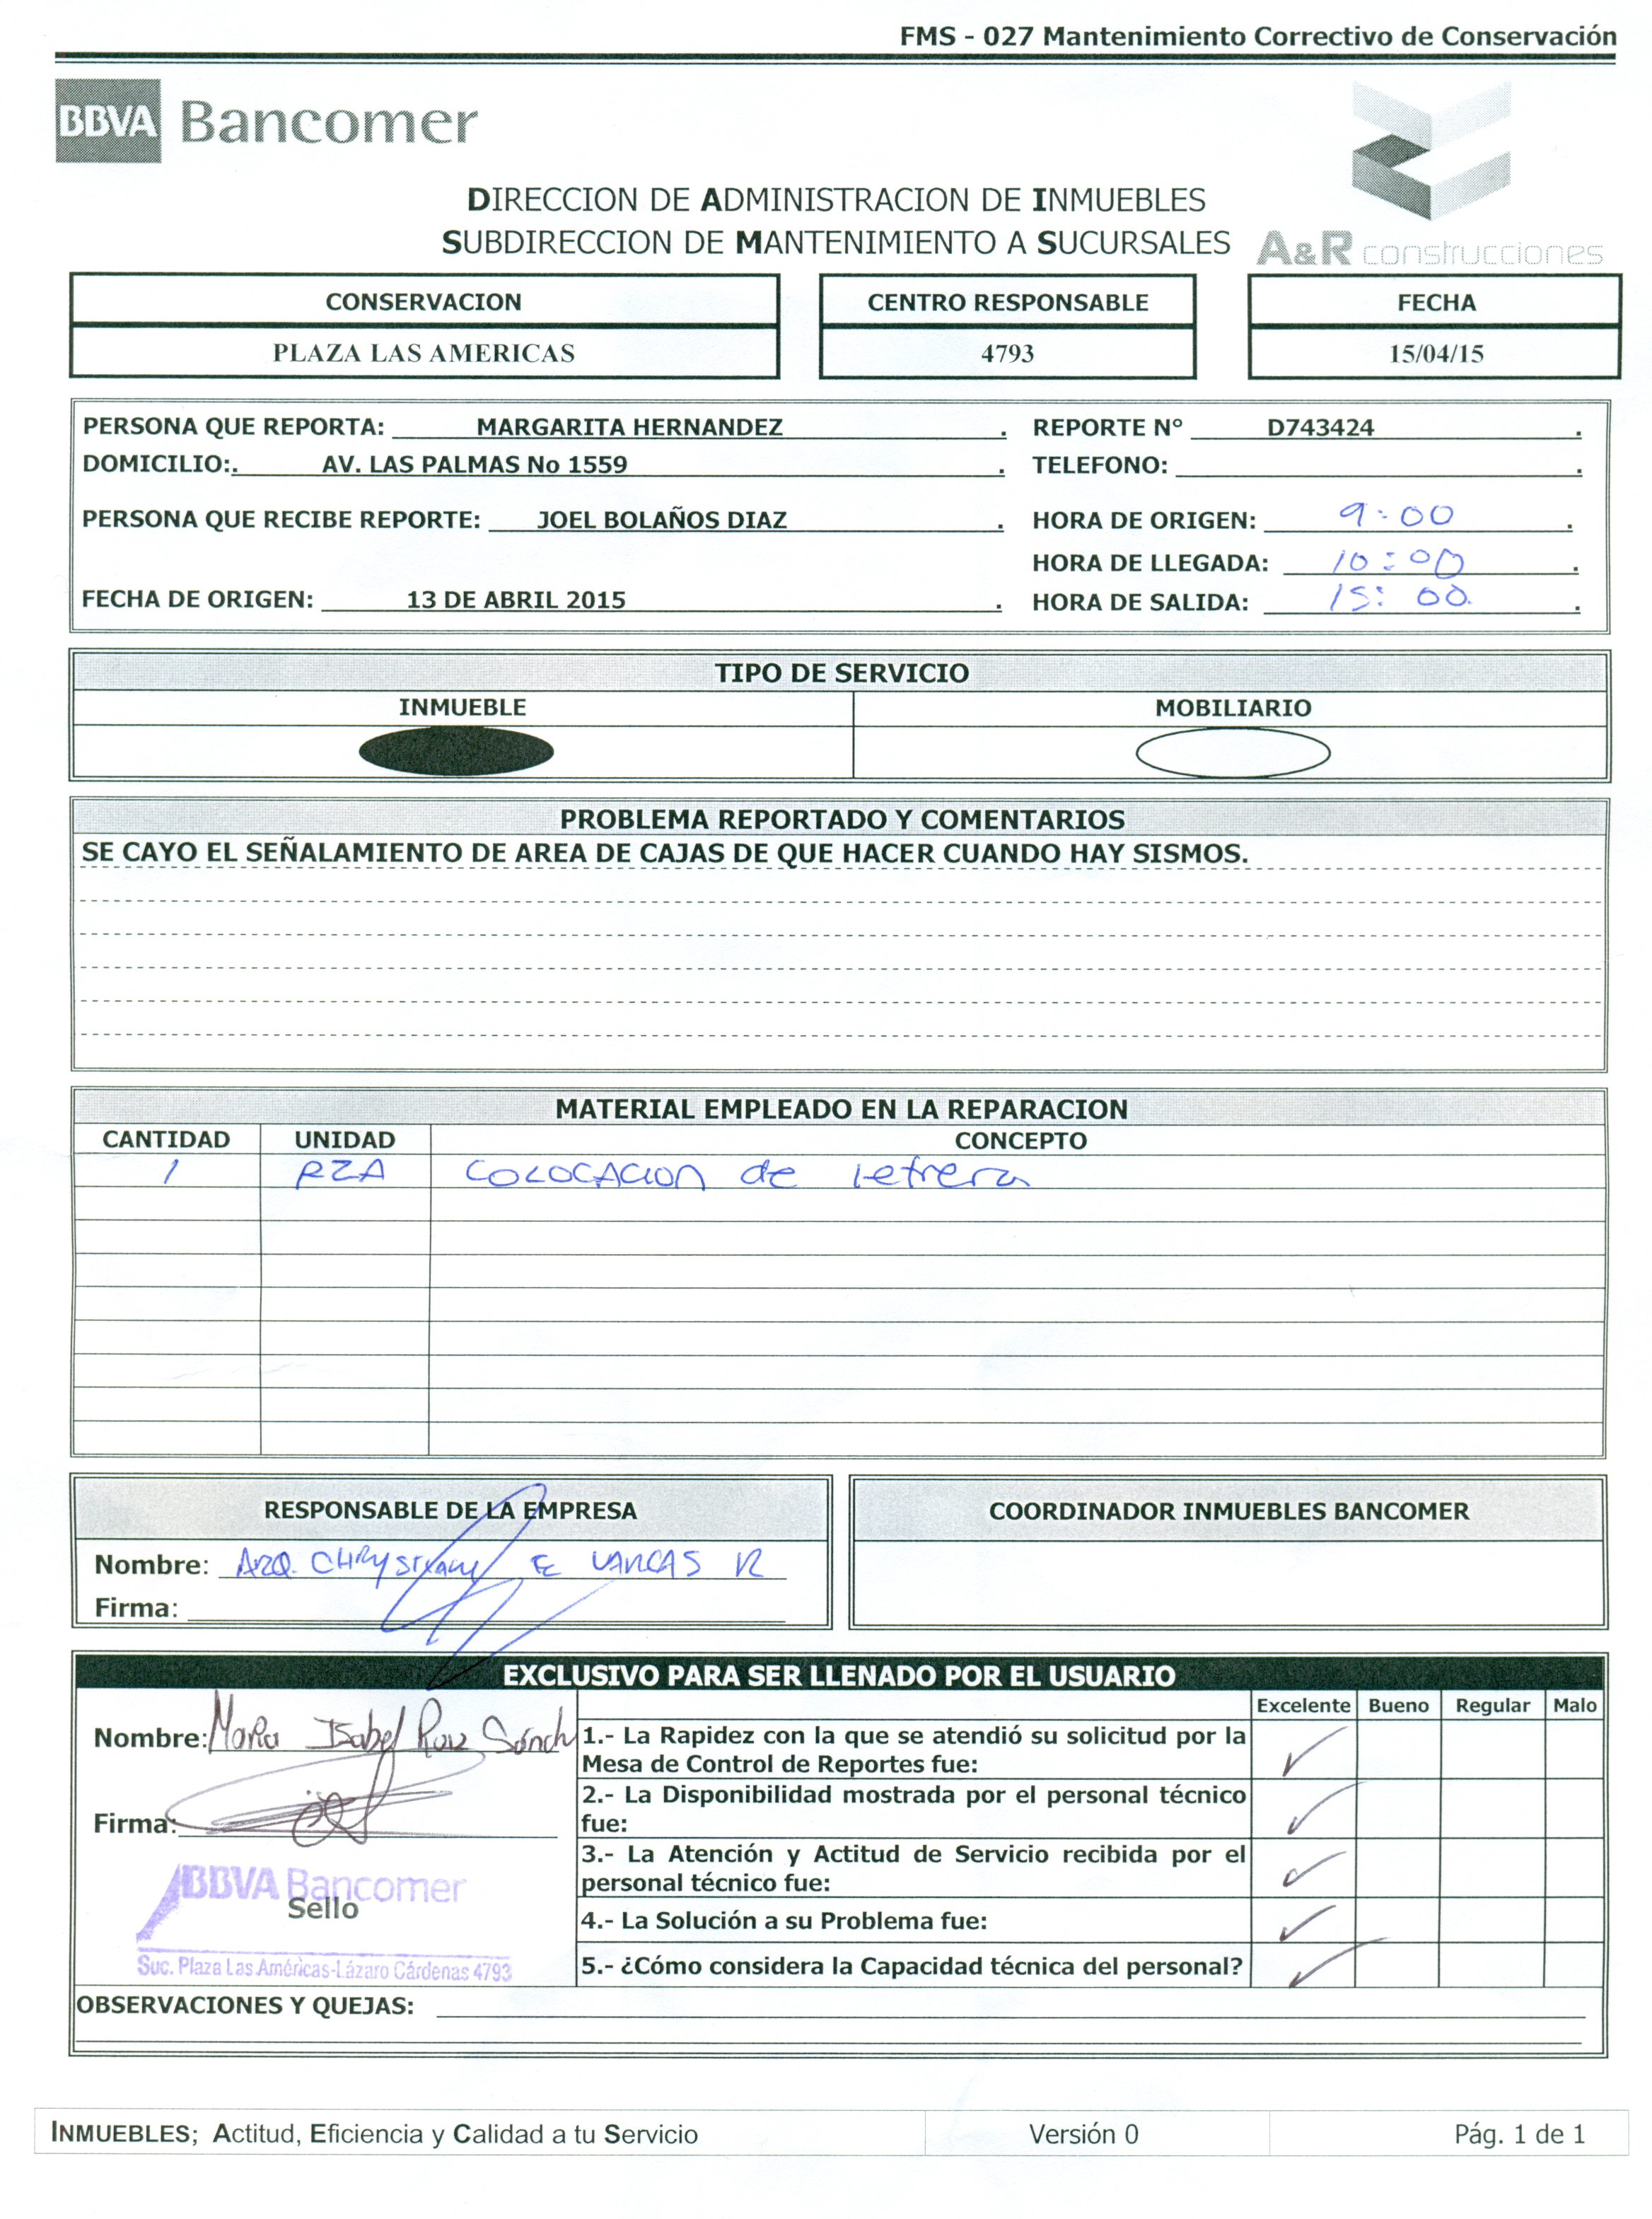 FMS - 027 Mantenimiento Correctivo de Conservación
BBVA Bancomer
DIRECCION DE ADMINISTRACION DE INMUEBLES
SUBDIRECCION DE MANTENIMIENTO A SUCURSALES
A&R construcciones
CONSERVACION CENTRO RESPONSABLE FECHA
PLAZA LAS AMERICAS 4793 15/04/15
PERSONA QUE REPORTA: MARGARITA HERNANDEZ . REPORTE N° D743424 .
DOMICILIO:. AV. LAS PALMAS No 1559 . TELEFONO: .
PERSONA QUE RECIBE REPORTE: JOEL BOLAÑOS DIAZ . HORA DE ORIGEN: 9:00 .
HORA DE LLEGADA: 10:00 .
FECHA DE ORIGEN: 13 DE ABRIL 2015 . HORA DE SALIDA: 15:00. .
TIPO DE SERVICIO
INMUEBLE MOBILIARIO
PROBLEMA REPORTADO Y COMENTARIOS
SE CAYO EL SEÑALAMIENTO DE AREA DE CAJAS DE QUE HACER CUANDO HAY SISMOS.
MATERIAL EMPLEADO EN LA REPARACION
CANTIDAD UNIDAD CONCEPTO
1 PZA COLOCACION de letrero
RESPONSABLE DE LA EMPRESA COORDINADOR INMUEBLES BANCOMER
Nombre: ARQ. E VARGAS R
Firma:
EXCLUSIVO PARA SER LLENADO POR EL USUARIO
Excelente Bueno Regular Malo
Nombre: Maria Isabel Ruiz
1.- La Rapidez con la que se atendió su solicitud por la
Mesa de Control de Reportes fue:
2.- La Disponibilidad mostrada por el personal técnico
fue:
Firma:
3.- La Atención y Actitud de Servicio recibida por el
personal técnico fue:
BBVA Bancomer
Sello
4.- La Solución a su Problema fue:
Suc. Plaza Las Américas-Lázaro Cárdenas 4793
5.- ¿Cómo considera la Capacidad técnica del personal?
OBSERVACIONES Y QUEJAS:
INMUEBLES; Actitud, Eficiencia y Calidad a tu Servicio Versión 0 Pág. 1 de 1